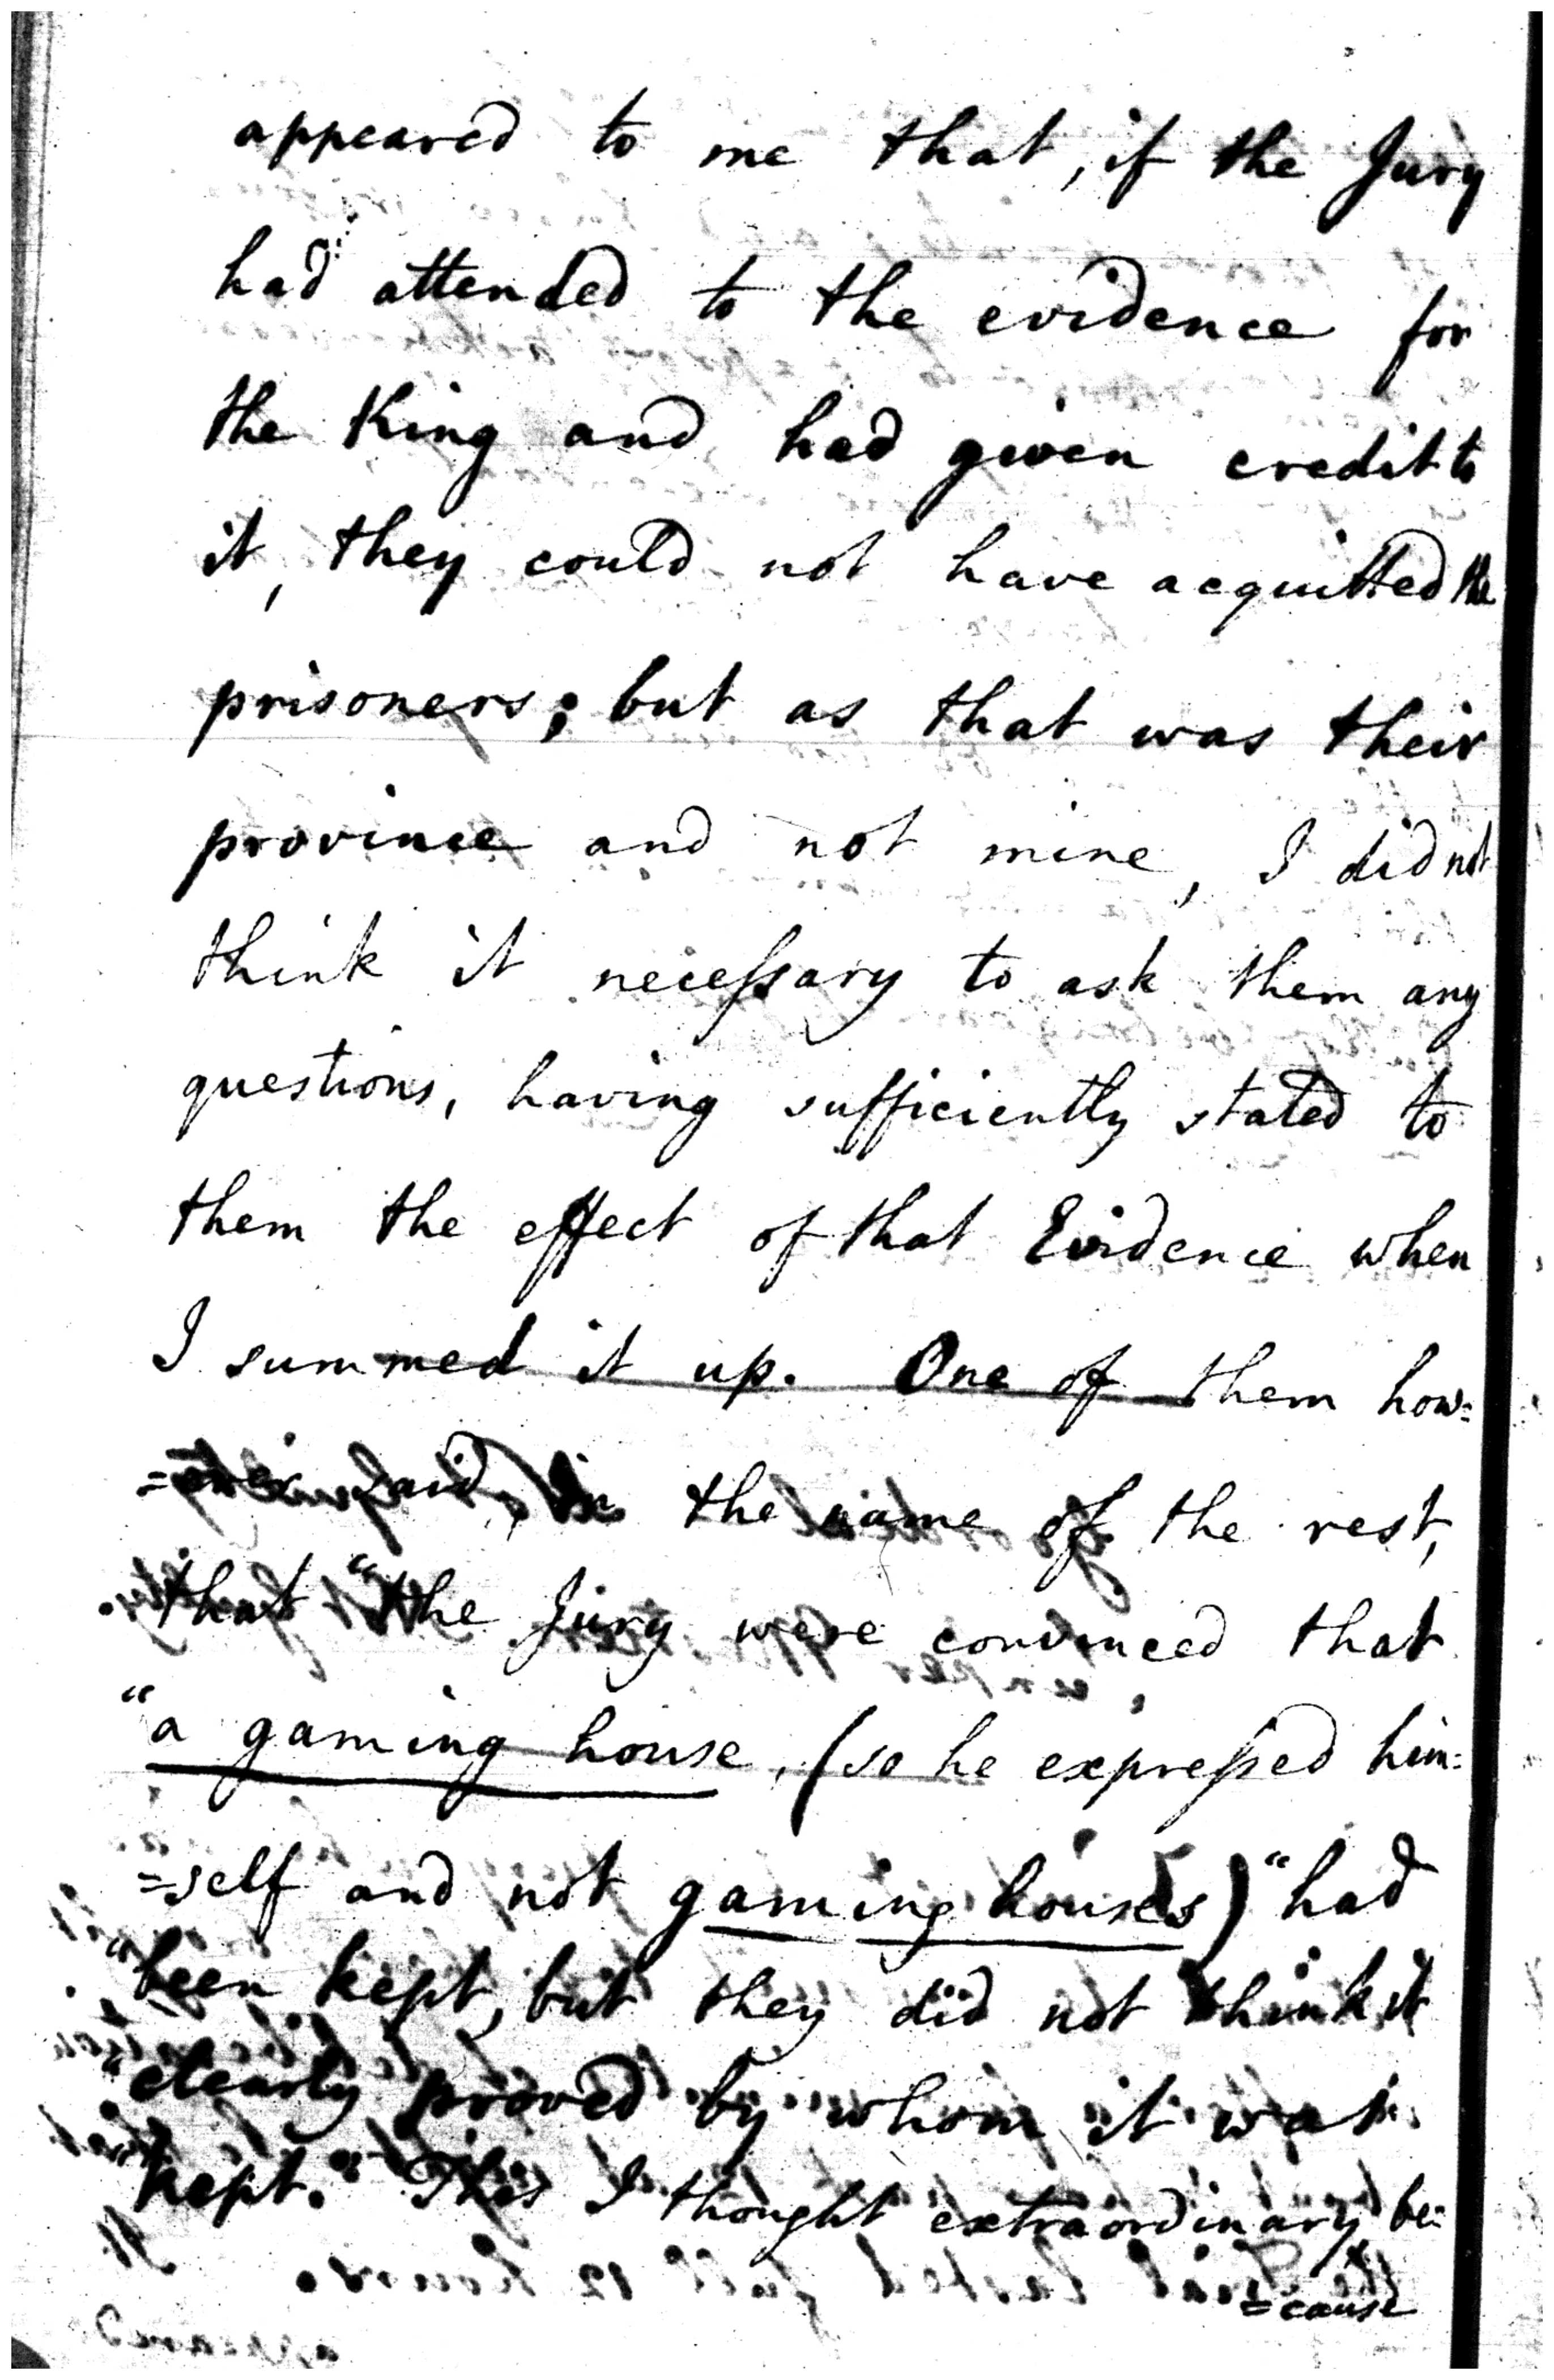 appeared to me that, if the Jury
had attended to the evidence for
the King and had given credit to
it, they could not have acquitted the
prisoners; but as that was their
province and not mine, I did not
think it neceſsary to ask them any
questions, having sufficiently stated to
them the effect of that Evidence when
I summed it up. One of them how=
=ever said, in the name of the rest,
that "the Jury were convinced that
"a gaming house, (so he expreſsed him=
=self and not gaming houses) "had
"been kept, but they did not think it
"clearly proved by whom it was
"kept." This I thought extraordinary be=
=cause